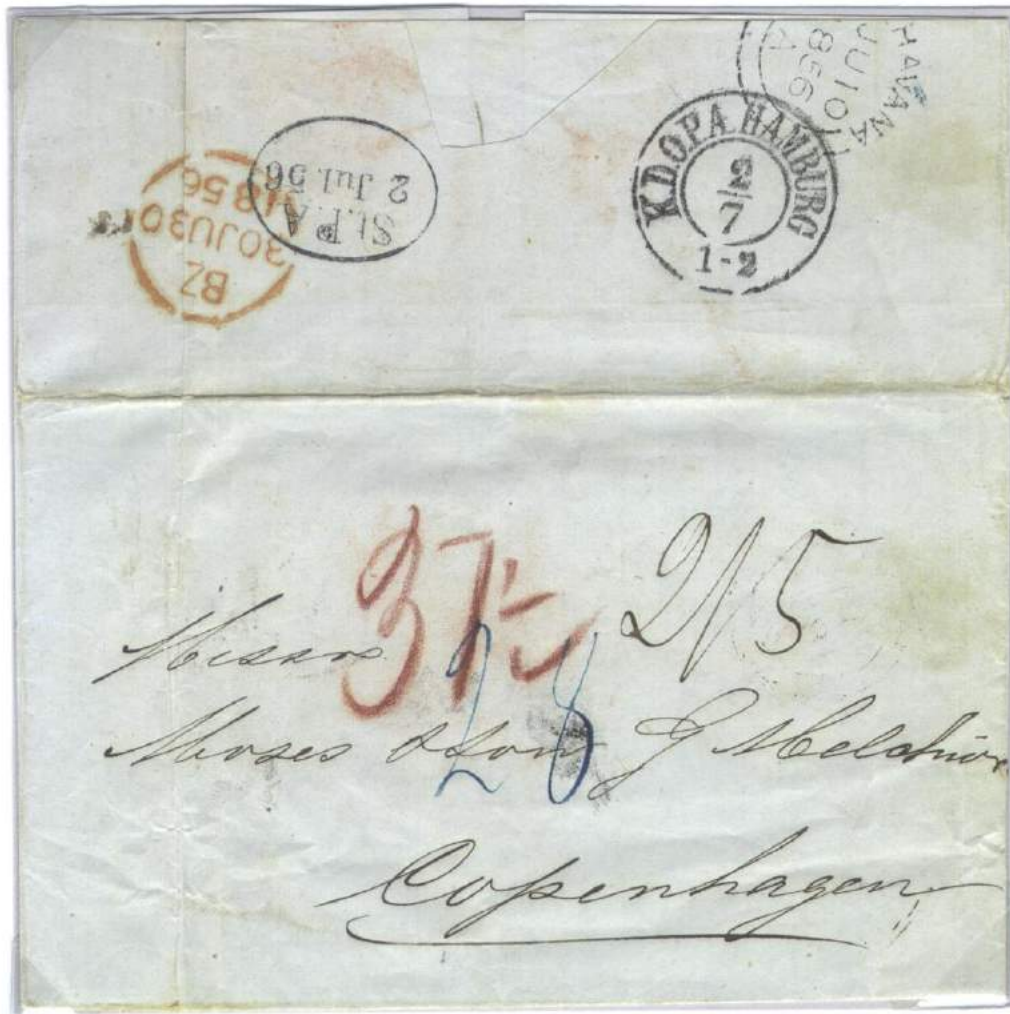 HAVANA
JU 10
1856
A
K.D.O.P.A. HAMBURG
2/7
1-2
St.P.A.
2 Jul. 56
BZ
30 JU 30
1856
37½
2/5
Messrs
28
Moses & Son G Melchior
Copenhagen